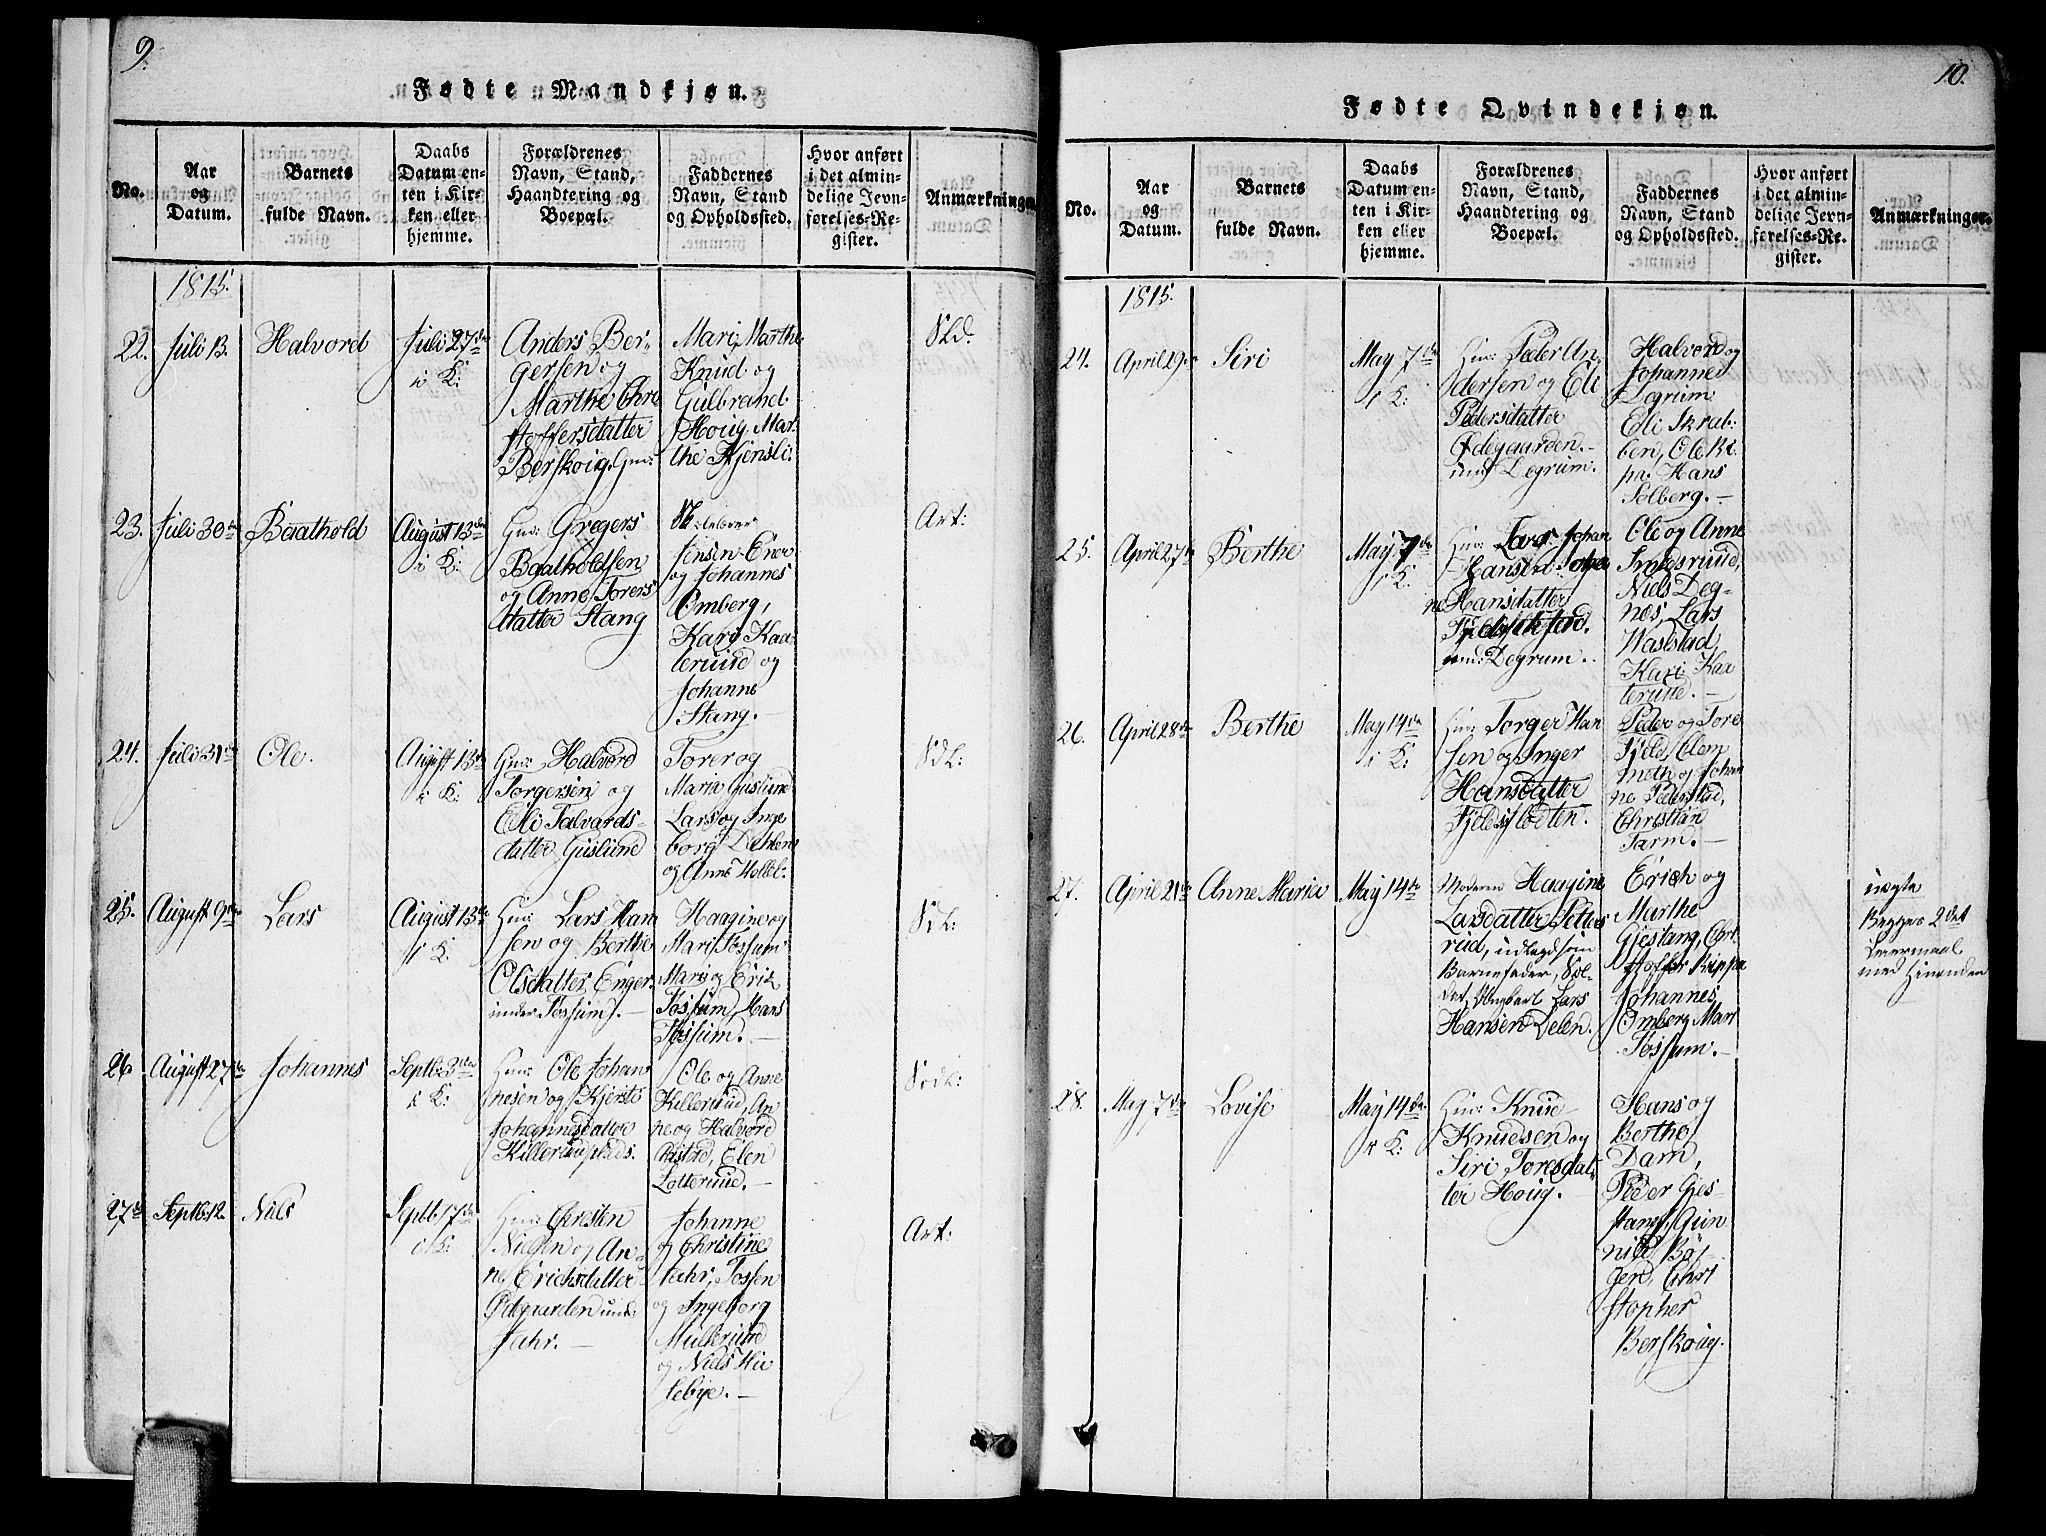 9.
Fødte Mandkjøn.
No.
Aar
og
Datum.
Barnets
fulde Navn.
Daabs
Datum en-
ten i Kir-
ken eller
hjemme.
Forældrenes
Navn, Stand,
Haandtering og
Boepæl.
Faddernes
Navn, Stand
og Opholdssted.
Hvor anført
i det almin-
delige Jevn-
førelses-Re-
gister.
Anmærkninger.
1815.
22.
Juli 13.
Halvord
Juli 27de
i K:
Anders Ber-
gersen og
Marthe Chri
stoffersdatter
Berskoig. Gm:
Mari, Marthe
Knud og
Gulbrand
Houg, Mar-
the Kjensli.
Vld.
23.
Juli 30te
Baathold
August 13de
i K:
Gm: Gregers
Baatholdsen
og Anne Torers
datter Stang
Jensen Ener
og Johannes
Omberg,
Kari Kaa-
terüüd og
Johanne
Stang.
Art:
24.
Juli 31te
Ole.
August 13de
i K:
Gm: Halvord
Torgersen og
Eli Talvards-
datter Güslünd
Torer og
Maria Güslünd
Lars og Inge
borg Dehlene
og Anne Hollel.
VdL:
25.
August 9de
Lars
August 13de
i K:
Hüm: Lars Han
sen og Berthe
Olsdatter Enger
ünder Fossum.
Haagine og
Mari Fossum
Mari og Erik
Fossum, Hans
Fossum.
VdL:
26
August 27de
Johannes
Septb: 3die
i K:
Hüm: Ole Johan
nesen og Kjersti
Johannesdatter
Killerüüdplads.
Ole og Anne
Killerüüd, An
ne og Halvord
Elen
Lotterüüd.
VdL:
27de
Septb: 12.
Niels
Septb 17de
i K:
Hüm: Christen
Nielsen og An-
ne Erichsdatter
Ødegaarden ünd:
Jahr.
Johanne
og Christine
Jahr, Tossen
og Ingeborg
Müllerüüd
og Niels Hü
lebye.
Art:
10.
Fødte Qvindekjøn.
No.
Aar
og
Datum.
Barnets
fulde Navn.
Daabs
Datum en-
ten i Kir-
ken eller
hjemme.
Forældrenes
Navn, Stand,
Haandtering og
Boepæl.
Faddernes
Navn, Stand
og Opholdssted.
Hvor anført
i det almin-
delige Jevn-
førelses-Re-
gister.
Anmærkninger.
1815.
24.
April 29de
Siri
May 7de
i K:
Hüm: Peder An-
dersen og Eli
Pedersdatter
Ødegaarden
ünd Degrum.
Halvord og
Johanne
Degrum
Eli Skrab-
ben, Ole Ki
pa. Hans
Solberg.
25.
April 27de
Berthe
May 7de
i K:
Hüm: Lars Johan
Hansen
ne Hansdatter
ünd: Degrum.
Ole og Anne
Niels Deg-
næs, Lars
Wastad,
Kari Kaa
terüüd.
26.
April 28de
Berthe
May 14de
i K:
Hüm: Torger Han
sen og Inger
Hansdatter
Fjeldsloetten.
Peder og Tore
Fjeld, Clem
meth og Johan
ne Pederstad,
Christian
Tarm.
27.
April 21de
Anne Maria
May 14de
i K:
Moderen Haagine
Larsdatter Petters
rüd, udlagd som
Barnefader, Sol-
dat, Ungkarl Lars
Hansen Delen.
Erich og
Marthe
Gjestang, Chri
stoffer Kippa
Johannes
Omberg, Mari
Fossum.
üægte
Begges 2det
Leiermaal
med hinanden
28.
May 7de
Lovise
May 14de
i K:
Hüm: Knüd
Knudsen og
Siri Toresdat-
ter Hoüg.
Hans og
Berthe
Dam,
Peder Gjes
stang, Gün
nild Bøj-
gen, Chri
stopher
Berskoüg.